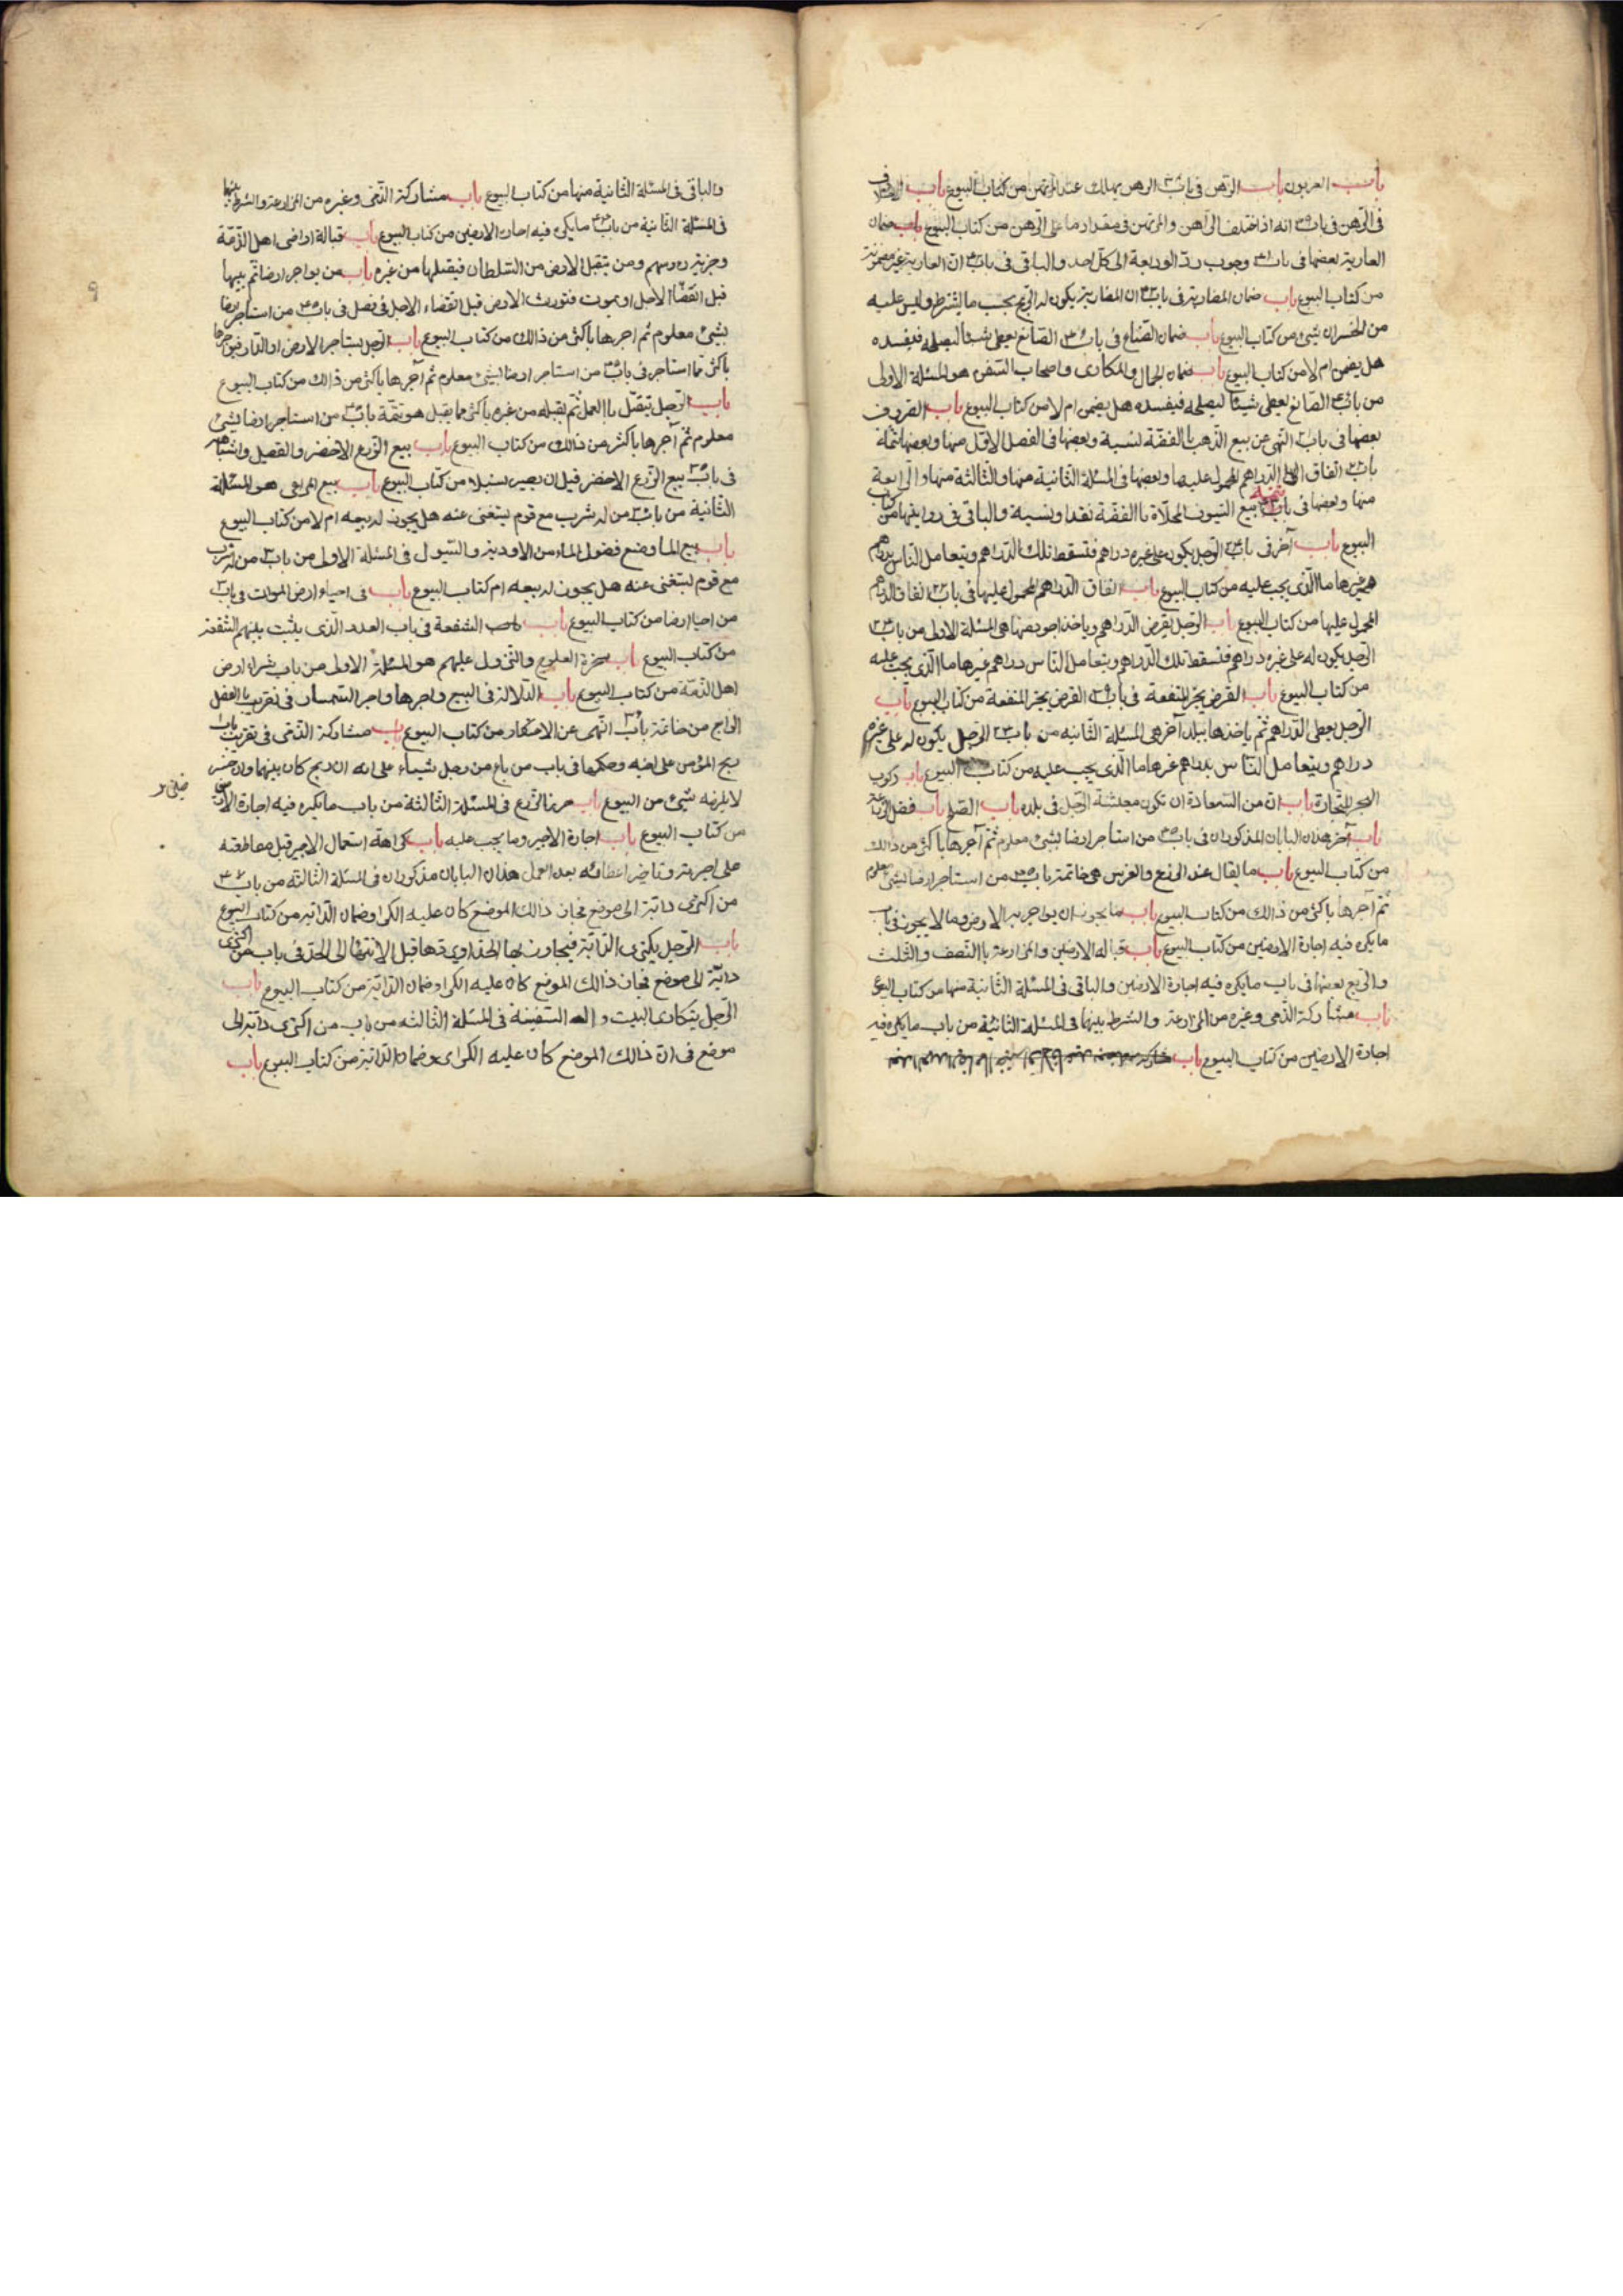 باب العربون باب الرهن في باب الرهن يهلك عند المرتهن من كتاب البيوع باب
في الرهن في باب انه اذا اختلف الراهن والمرتهن في مقدار ما على الرهن من كتاب البيوع باب ضمان
العارية بعضها في باب وجوب ردّ الوديعة الى كل احد والباقي في باب انّ العارية غير مضمونة
من كتاب البيوع باب ضمان المضاربة في باب ان المضاربة يكون له الربح بحسب ما يشترط وليس عليه
من الخسران شئ من كتاب البيوع باب ضمان الصّنّاع في باب الصّانع يعطى شيئا ليصلحه فيفسده
هل يضمن ام لا من كتاب البيوع باب ضمان الجمال والمكارى واصحاب السّفن هو المسئلة الاولى
من باب الصّانع يعطى شيئا ليصلحه فيفسده هل يضمن ام لا من كتاب البيوع باب الصروف
بعضها في باب النّهى عن بيع الذّهب باالفضّة نسية وبعضها في الفصل الاوّل منها وبعضها
باب انفاق الدّراهم المحمول عليها وبعضها في المسئلة الثانية منها والثّالثة منها والرّابعة
منها وبعضها في باب بيع السّيوف المحلّاة باالفضّة نقدا ونسية والباقي في من كتاب
البيوع باب آخر في باب الرّجل يكون على غيره دراهم فتسقط تلك الدّراهم ويتعامل النّاس بدراهم
غيرها ما الّذى يجب عليه من كتاب البيوع باب انفاق الدّراهم المحمول عليها في باب انفاق الدراهم
المحمول عليها من كتاب البيوع باب الرّجل يقرض الدّراهم وياخذ اجود منها هى المسئلة الاولى من باب
الرّجل يكون له على غيره دراهم فتسقط تلك الدّراهم ويتعامل النّاس دراهم غيرها ما الّذى يجب عليه
من كتاب البيوع باب القرض يجرّ المنفعة في باب القرض يجرّ المنفعة من كتاب البيوع باب
الرّجل يعطى الدّراهم ثم ياخذها ببلد آخر هى المسئلة الثّانيه من باب الرّجل يكون له على غيره
دراهم ويتعامل النّاس بدراهم غيرها ما الّذى يجب عليه من كتاب البيوع باب ركوب
البحر للتجارة باب انّ من السّعادة ان تكون معيشة الرّجل في بلده باب الصّلح باب فضل الزّراعة
باب آخر هذان البابان المذكوران في باب من استاجر ارضا بشئ معلوم ثم آجرها باكثر من ذالك
من كتاب البيوع باب ما يقال عند الزّرع والغرس هى خاتمة باب من استاجر ارضا بشئ معلوم
ثم آجرها باكثر من ذالك من كتاب البيوع باب ما يجوز ان يواجر به الارض وما لا يجوز في باب
ما يكره فيه اجارة الارضين من كتاب البيوع باب قبالة الارضين والمزارعة باالنّصف والثّلث
والرّبع بعضها في باب ما يكره فيه اجارة الارضين والباقي في المسئلة الثّانية منها من كتاب البيوع
باب مشاركة الذّمى وغيره من المزارعة والشرط بينها في المسئلة الثانية من باب ما يكره فيه
اجارة الارضين من كتاب البيوع باب
والباقي في المسئلة الثّانية منها من كتاب البيوع باب مشاركة الذّمى وغيره من المزارعة والشرط بينها
في المسئلة الثّانية من باب ما يكره فيه اجارة الارضين من كتاب البيوع باب قبالة اراضى اهل الذّمّة
وجزية رءوسهم ومن يتقبل الارض من السّلطان فيقبلها من غيره باب من يواجر ارضا ثم يبيها
قبل انقضاء الاجل او يموت فتورث الارض قبل انقضاء الاجل في فصل في باب من استاجر ارضا
بشئ معلوم ثم اجرها باكثر من ذالك من كتاب البيوع باب الرّجل يستاجر الارض او الدّار فيواجرها
باكثر ممّا استاجر في باب من استاجر ارضا بشئ معلوم ثم آجرها باكثر من ذالك من كتاب البيوع
باب الرّجل يتقبّل باالعمل ثم يقبله من غيره باكثر مما يقبل هو تتمّة باب من استاجر ارضا بشئ
معلوم ثم آجرها باكثر من ذالك من كتاب البيوع باب بيع الزّرع الاخضر والقصيل واشباهه
في باب بيع الزّرع الاخضر قبل ان يصير سنبلا من كتاب البيوع باب بيع المراعى هو المسئلة
الثّانية من باب من له شرب مع قوم يستغنى عنه هل يجوز له بيعه ام لا من كتاب البيوع
باب بيع الماء ومنع فضول الماء من الاودية والسّيول في المسئلة الاولى من باب من له شرب
مع قوم يستغنى عنه هل يجوز له بيعه ام كتاب البيوع باب في احياء ارض الموات في باب
من احيا ارضا من كتاب البيوع باب الشفعة في باب العدد الّذى يثبت بينهم الشّفعة
من كتاب البيوع باب سخرة العلوج والنّزول عليهم هو المسئلة الاولى من باب شراء ارض
اهل الذّمّة من كتاب البيوع باب الدّلالة في البيع واجرها واجر السّمسار في
من خاتمة باب النّهى عن الاحتكار من كتاب البيوع باب مشاركة الذّمى في
ربح المؤمن على اخيه وحكمها في باب من باع من رجل شيئا على انه ان ربح كان بينهما وان خسر
لا يلزمه شئ من البيوع باب حرز الزّرع في المسئلة الثّالثة من باب ما يكره فيه اجارة الارضين
من كتاب البيوع باب اجارة الاجير وما يجب عليه باب كراهة استعمال الاجير قبل مقاطعته
على اجرته وتاخير اعطائه بعد العمل هذان البابان مذكوران في المسئلة الثّالثة من باب
من اكترى دابّة الى موضع فجاز ذالك الموضع كان عليه الكرا وضمان الدّابّة من كتاب البيوع
باب الرّجل يكترى الدّابّة فيجاوز بها الحدّ او يردّها قبل الانتهاء الى الحدّ في باب من اكترى
دابّة الى موضع فجاز ذالك الموضع كان عليه الكرا وضمان الدّابّة من كتاب البيوع باب
الرّجل يتكارى البيت والسّفينة في المسئلة الثّالثة من باب من اكترى دابّة الى
موضع ذالك الموضع كان عليه الكراى وضمان الدّابّة من كتاب البيوع باب